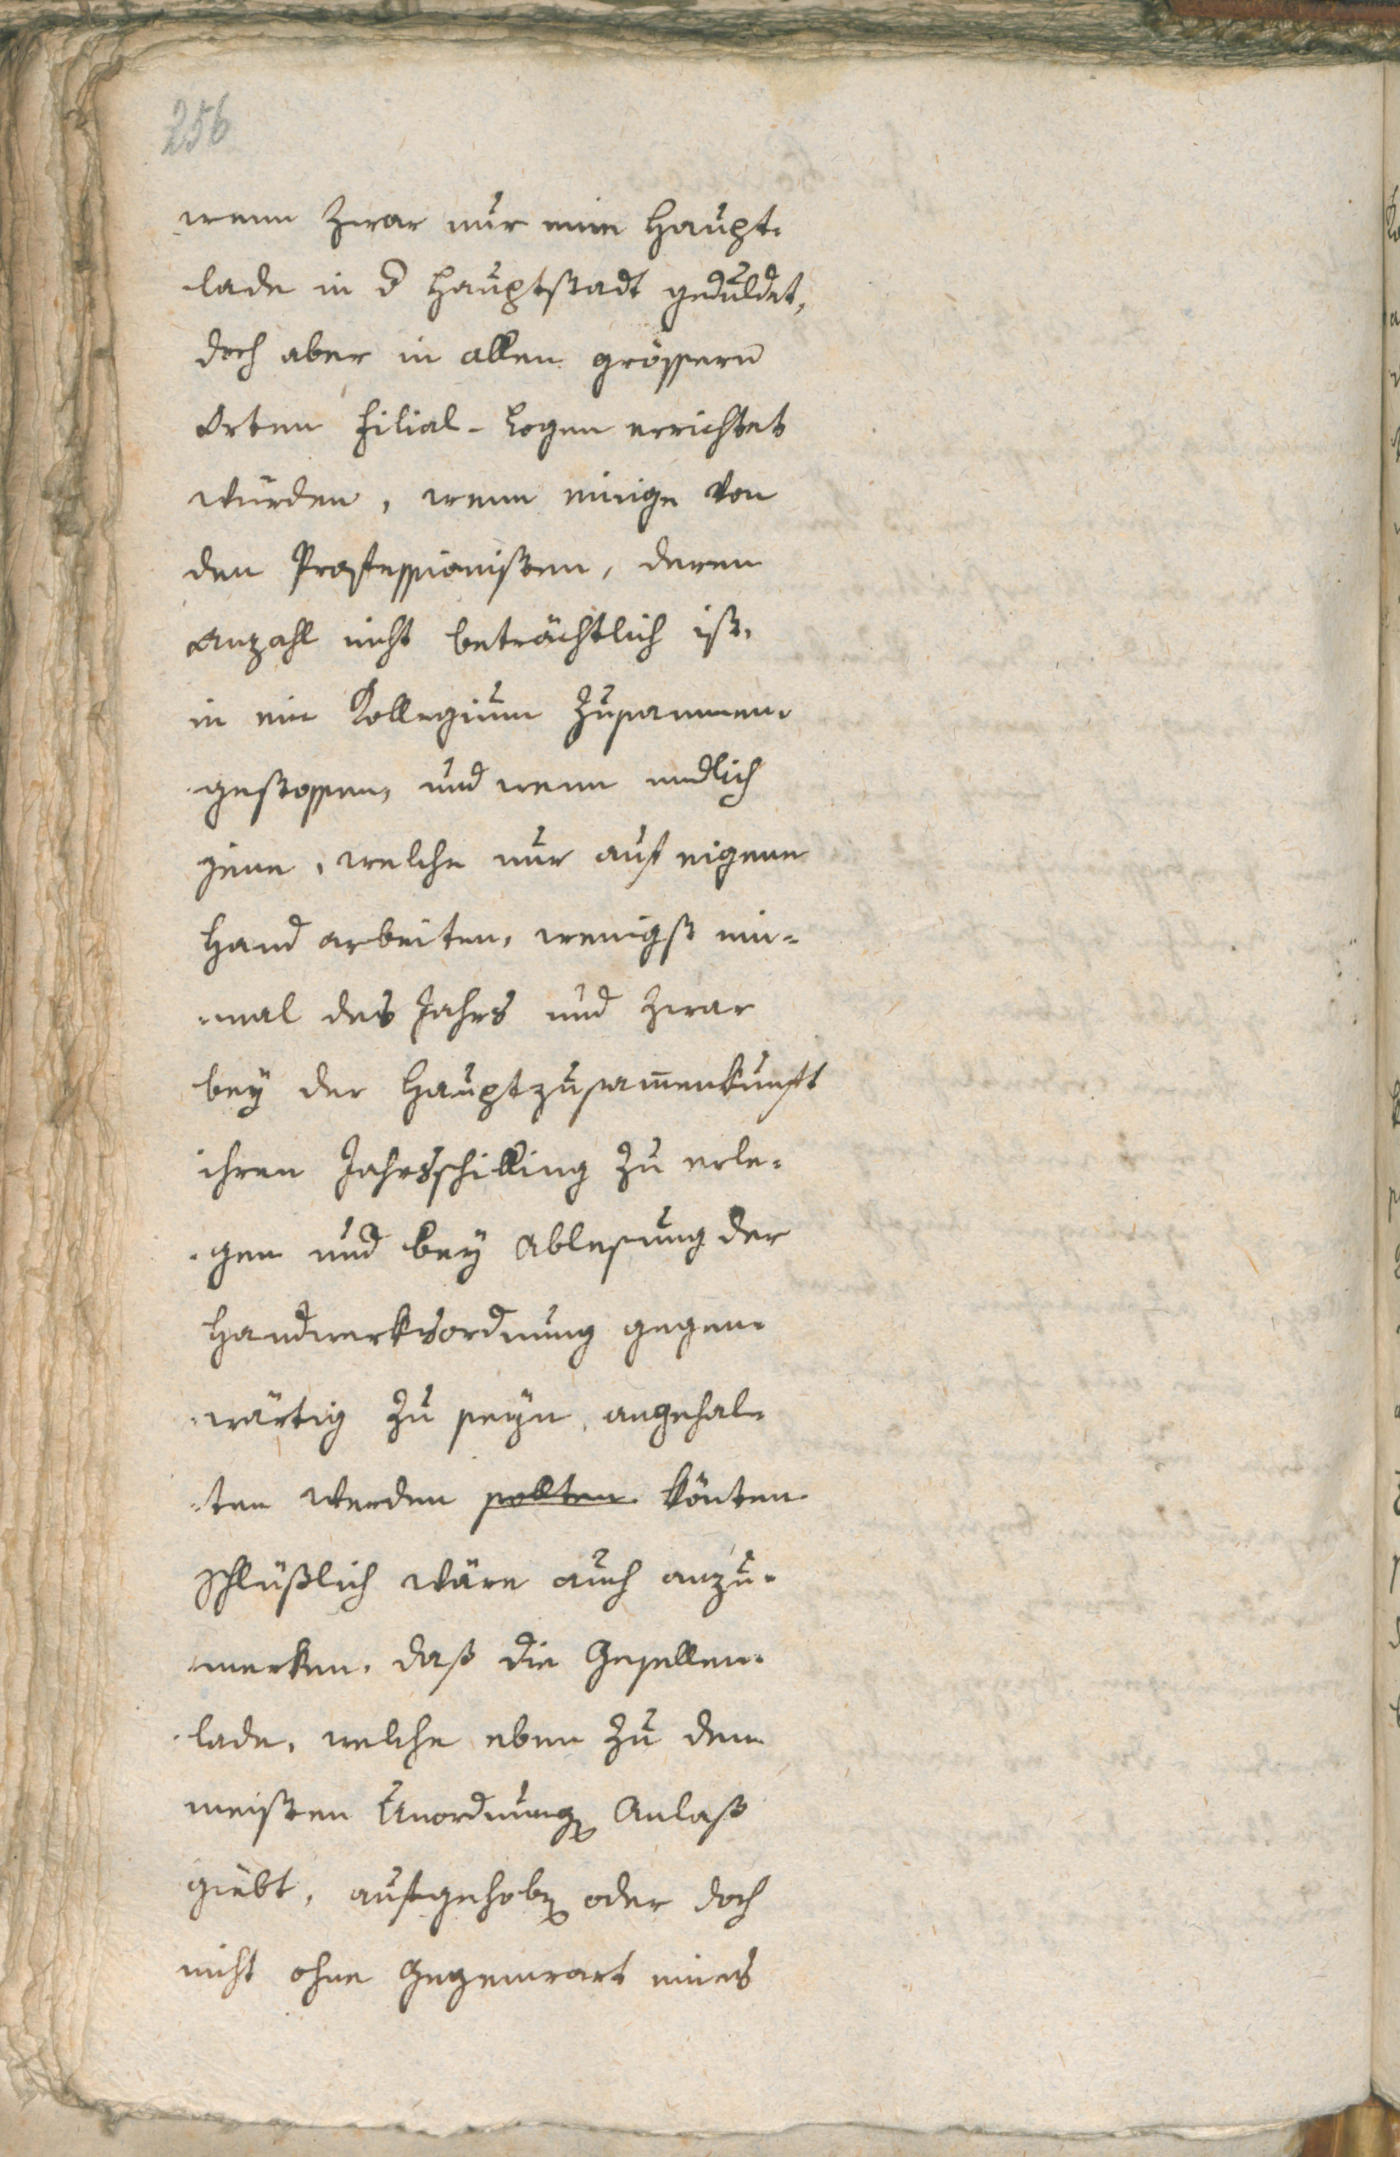 256
wenn zwar nur eine Haupt-
lade in d Hauptstadt geduldet,
doch aber in allen grössern
Orten Filial-Logen errichtet
würden, wenn einige von
den Professionisten, deren
Anzahl nicht beträchtlich ist,
in ein Kollegium zusammen-
gestossen, und wenn endlich
jene, welche nur auf eigene
Hand arbeiten, wenigst ein-
mal des Jahrs und zwar
bey der Hauptzusam̅enkunft
ihren Jahrsschilling zu erle-
gen und bey Ablesung der
Handwerksordnung gegen-
wärtig zu seyn, angehal-
ten werden sollten könten
Schlüßlich wäre auch anzu-
merken, daß die Gesellen-
lade, welche eben zu den
meisten Unordnung Anlaß
giebt, aufgehobn oder doch
nicht ohne Gegenwart eines